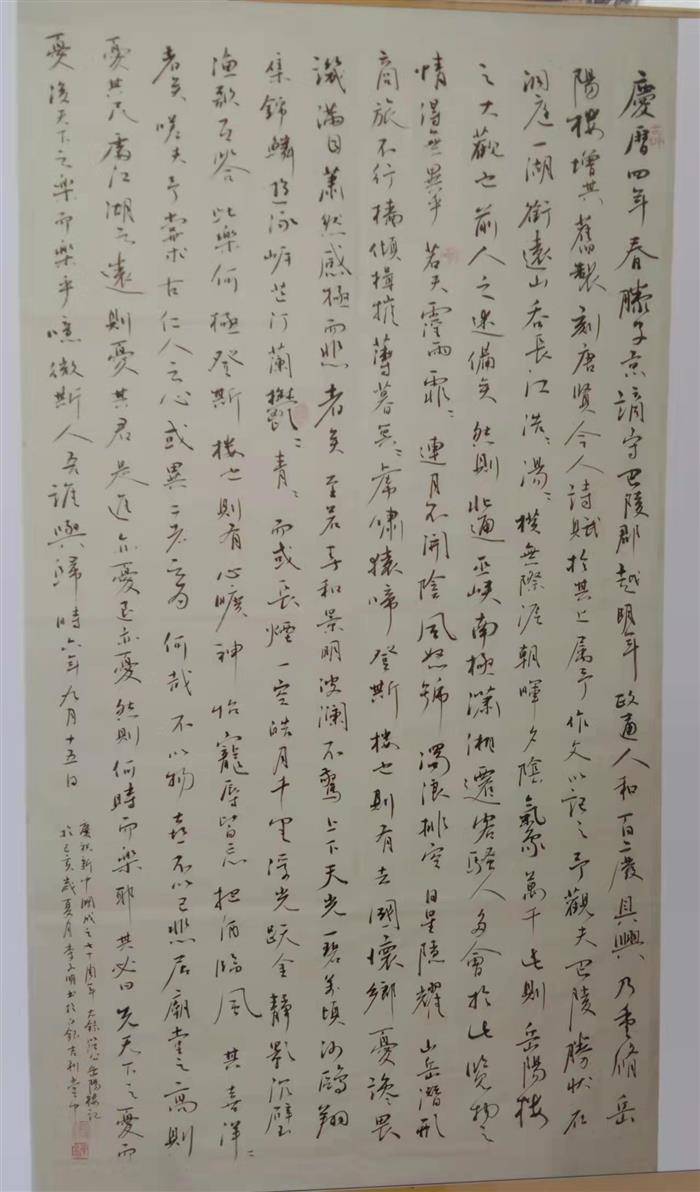 慶曆四年春滕子京謫守巴陵郡越明年政通人和百廢具興乃重脩岳
陽樓增其舊製刻唐賢今人詩賦於其上属予作文以記之予觀夫巴陵勝狀在
洞庭一湖銜遠山吞長江浩〻湯〻橫無際涯朝暉夕陰氣象萬千此則岳陽樓
之大觀也前人之述備矣然則北通巫峽南極瀟湘遷客騷人多會於此覽物之
情得無異乎若夫霪雨霏〻連月不開陰風怒號濁浪排空日星隱耀山岳潛形
商旅不行檣傾楫摧薄暮冥〻虎嘯猿啼登斯樓也則有去國懷鄉憂讒畏
譏滿目蕭然感極而悲者矣至若春和景明波瀾不驚上下天光一碧萬頃沙鷗翔
集錦鱗游泳岸芷汀蘭鬱〻青〻而或長煙一空皓月千里浮光躍金靜影沉璧
漁歌互答此樂何極登斯樓也則有心曠神怡寵辱皆忘把酒臨風其喜洋〻
者矣嗟夫予嘗求古仁人之心或異二者之為何哉不以物喜不以己悲居廟堂之高則
憂其民處江湖之遠則憂其君是進亦憂退亦憂然則何時而樂耶其必曰先天下之憂而
憂後天下之樂而樂乎噫微斯人吾誰與歸時六年九月十五日
慶祝新中國成立七十周年大錄范公岳陽樓記
於己亥歲夏月李文明書於